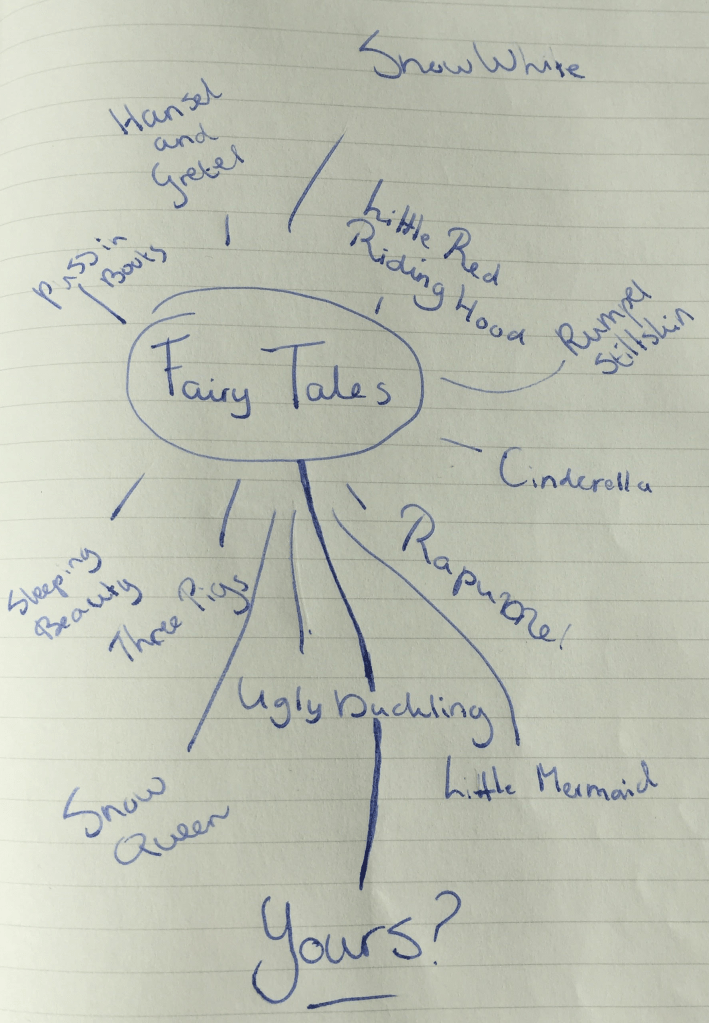 Snow White
Hansel
and
Gretel
Little Red
Riding Hood
Puss in
Boots
Rumpel
Stiltskin
Fairy Tales
Cinderella
Rapunzel
Sleeping
Beauty
Three Pigs
Ugly Duckling
Little Mermaid
Snow
Queen
Yours?